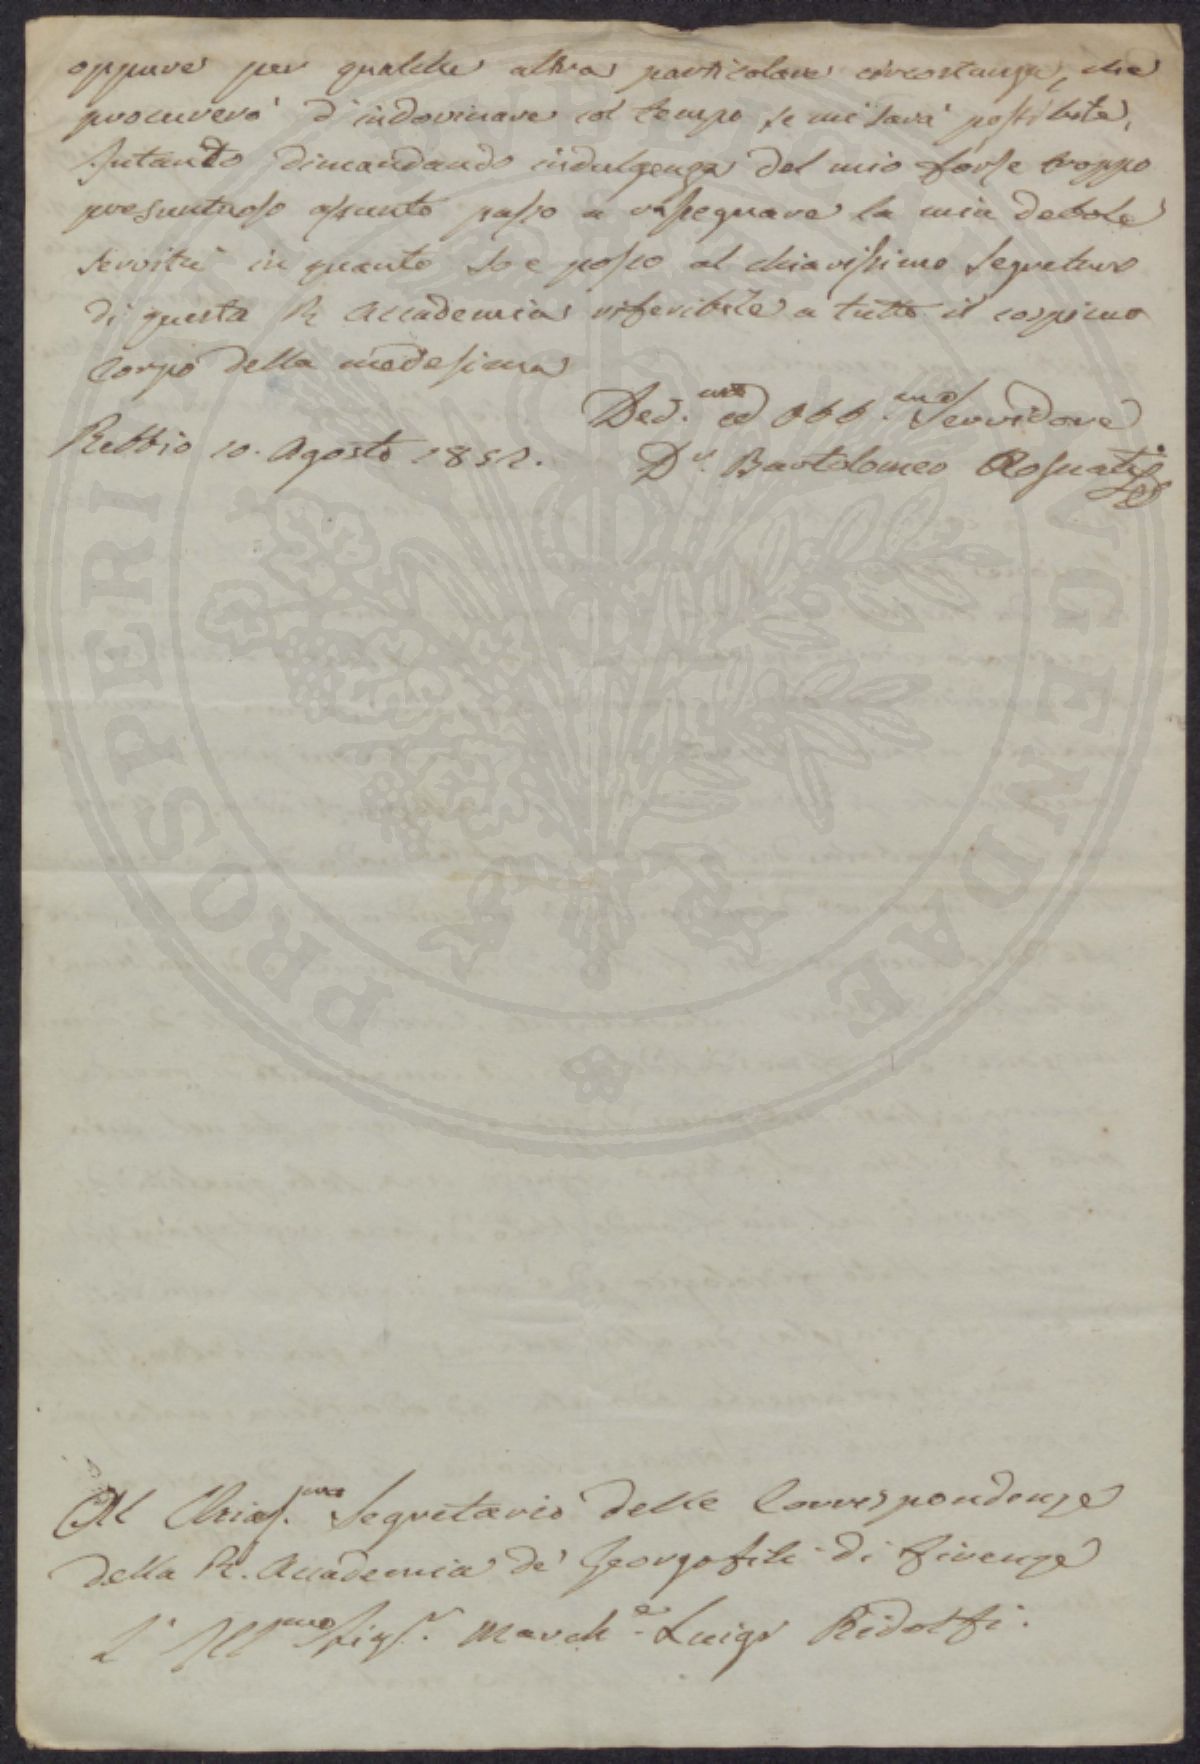 oppure per qualche altra particolare circostanza, che
procurerò d'indovinare col tempo se mi sarà possibile,
Intanto dimandando indulgenza del mio forse troppo
presuntuoso assunto passo a rassegnare la mia debole
servitù in quanto so e posso al chiarissimo Segretario
di questa R. Accademia riferibile a tutto il cospicuo
Corpo della medesima
Ded.mo ed Obb.mo Servidore
Rebbio 10. Agosto 1852.
Dr. Bartolomeo
Al Chias.mo Segretario delle Corrispondenze
della R. Accademia de' Georgofili di Firenze
L' Ill.mo Sigr. March.e Luigi Ridolfi.
PROSPERITATI PUBLICAE AUGENDAE